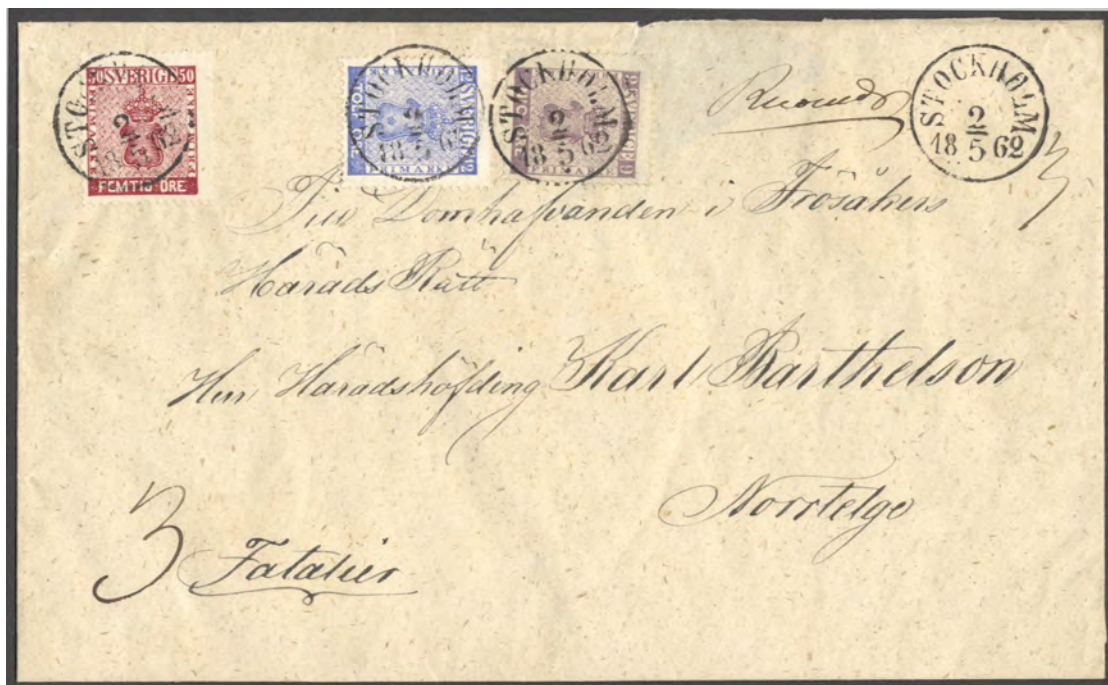 50 SVERIGE 50
FRIMÄRKE
FEMTIO ÖRE
STOCKHOLM
2
5
18 62
SVERIGE
TOLF ÖRE
FRIMARKE
STOCKHOLM
2
5
18 62
SVERIGE
FRIMARKE
STOCKHOLM
2
5
18 62
STOCKHOLM
2
5
18 62
3
Till Domhafvanden i Frösåkers
Härads Rätt
Herr Häradshöfding Karl Barthelson
Norrtelge
3 Fatalier